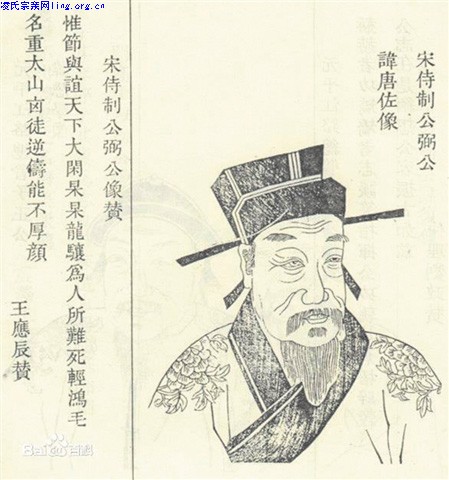 凌氏宗亲网ling.org.cn
宋侍制公弼公
諱唐佐像
宋侍制公弼公像赞
惟節與誼天下大閑杲杲龍驤為人所難死輕鴻毛
名重太山卤徒逆儔能不厚顔
王應辰赞
Bai百科